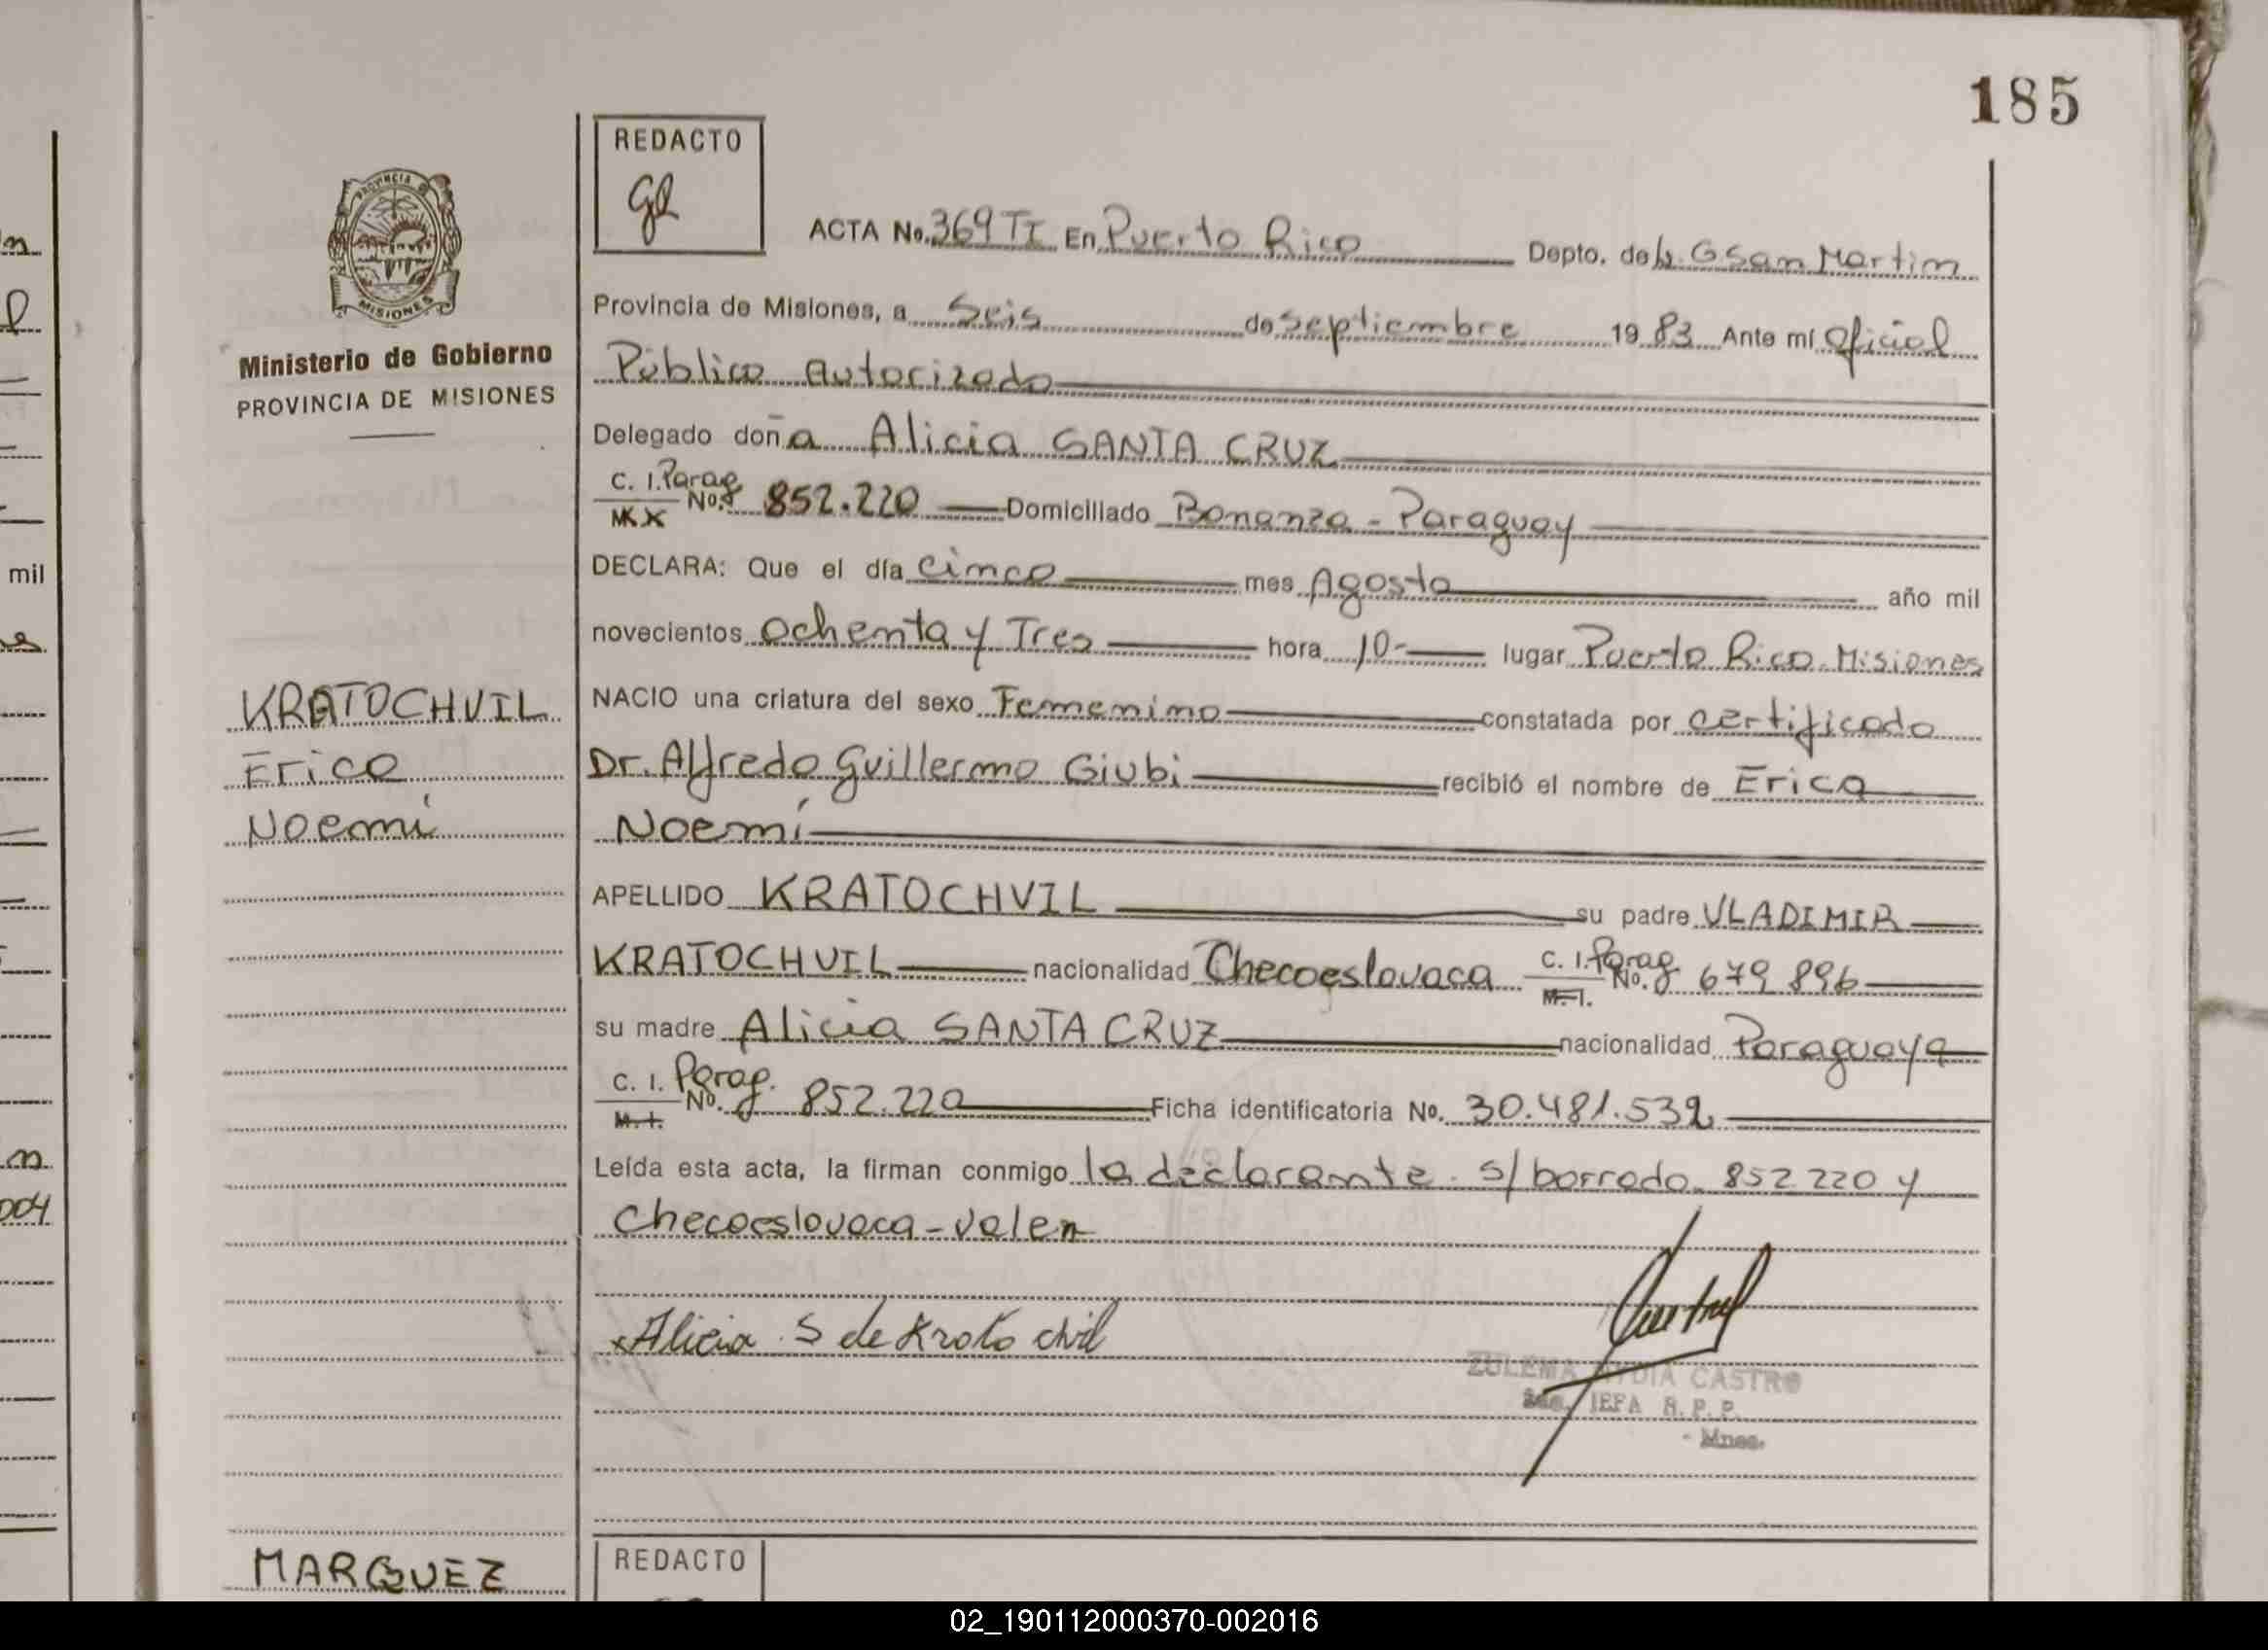 185
REDACTO
PROVINCIA
MISIONES
ACTA No. 369 TI En Puerto Rico Depto. de L. G San Martin
Provincia de Misiones, a Seis de Septiembre 19 83 Ante mí Oficial
Ministerio de Gobierno
PROVINCIA DE MISIONES
Público Autorizado
Delegado doña Alicia SANTA CRUZ
C. I. Parag No. 852.220 Domiciliado Bonanza - Paraguay
DECLARA: Que el día cinco mes Agosto año mil
novecientos Ochenta y Tres hora 10- lugar Puerto Rico Misiones
NACIO una criatura del sexo Femenino constatada por certificado
Dr. Alfredo Guillermo Giubi recibió el nombre de Erica
Noemí
KRATOCHVIL
Erica
Noemí
APELLIDO KRATOCHVIL su padre VLADIMIR
KRATOCHVIL nacionalidad Checoeslovaca C. I. Parag No. 679 896
M. I.
su madre Alicia SANTA CRUZ nacionalidad Paraguaya
C. I. Parag. No. 852.220 Ficha identificatoria No. 30.481.532
M. I.
Leída esta acta, la firman conmigo la declarante. S/ borrado. 852 220 y
Checoeslovaca - Valen
Alicia S de Kratochvil
ZULEMA AYDIA CASTRO
JEFA R. P. P.
- Mnes.
MARQUEZ
REDACTO
n
l
mil
n
004
02_190112000370-002016